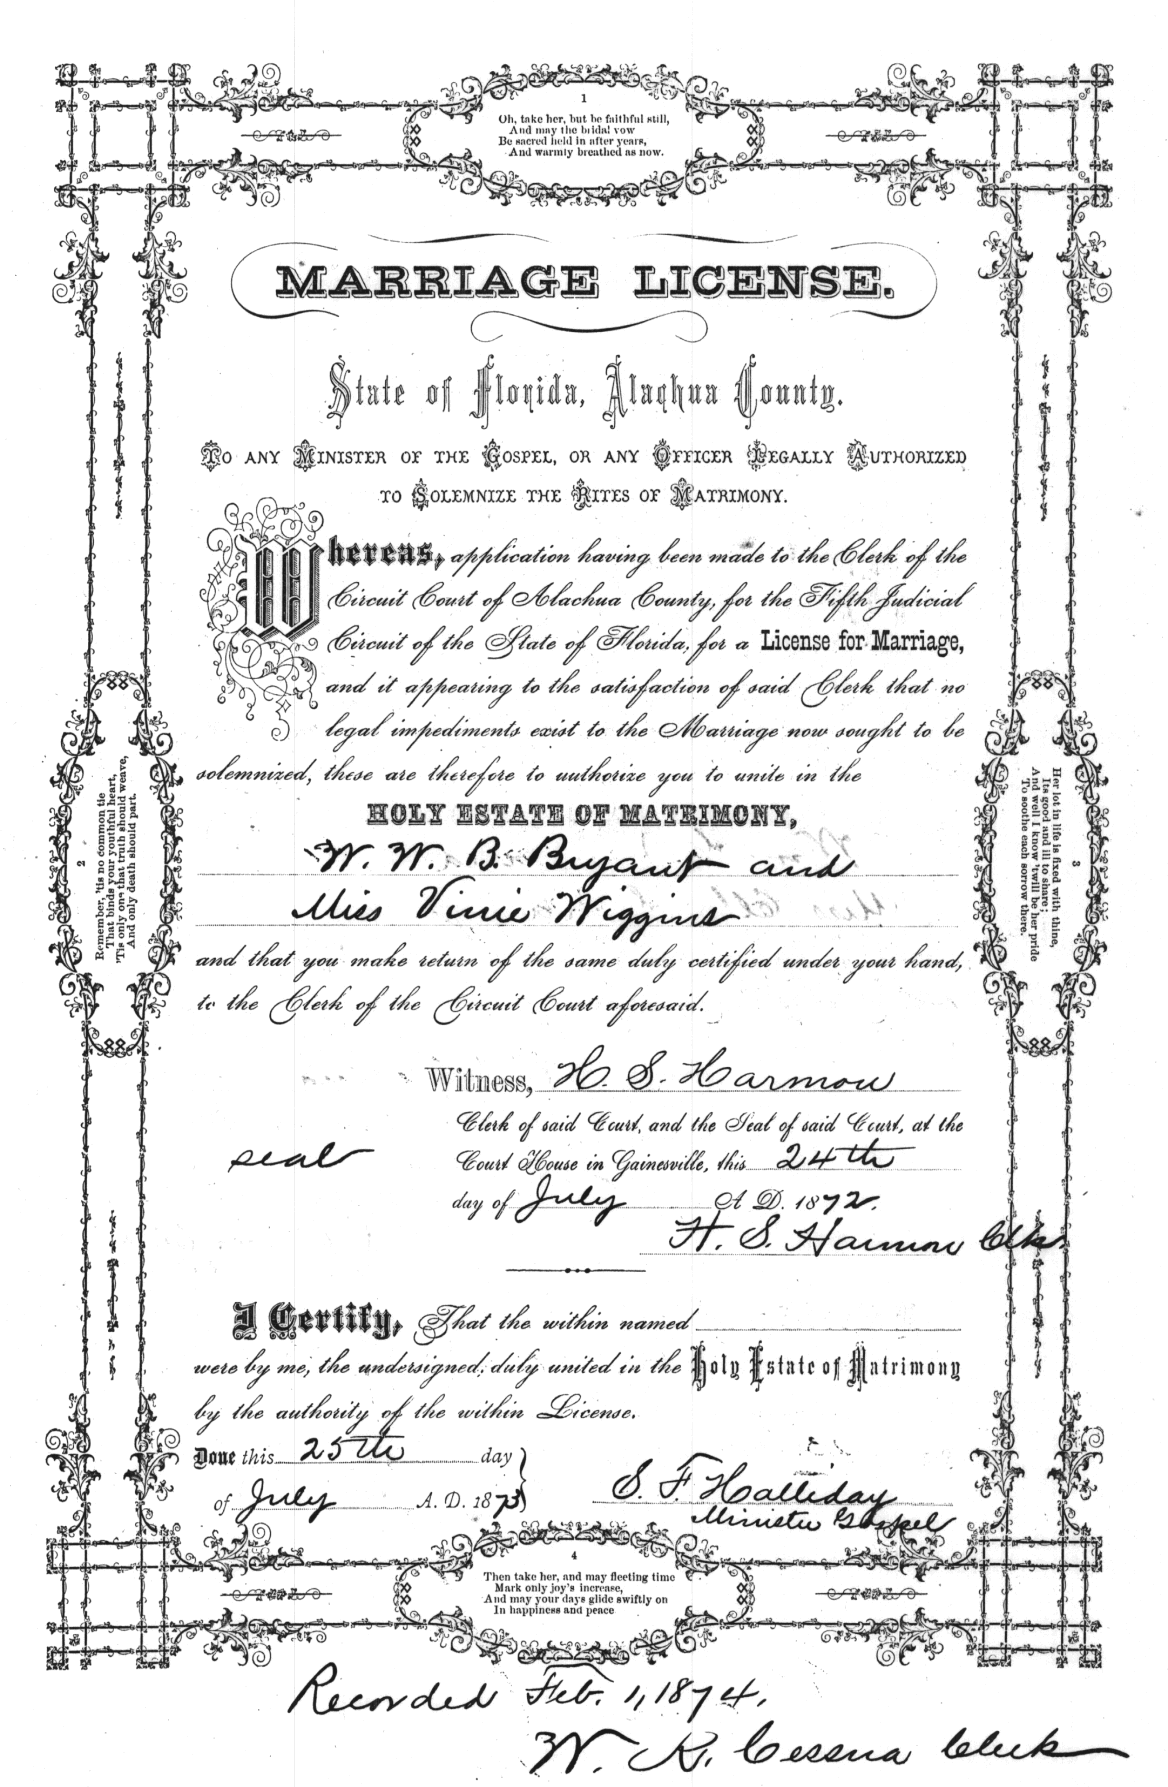 1
Oh, take her, but be faithful still,
And may the bridal vow
Be sacred held in after years,
And warmly breathed as now.
MARRIAGE LICENSE.
State of Florida, Alachua County.
TO ANY MINISTER OF THE GOSPEL, OR ANY OFFICER LEGALLY AUTHORIZED
TO SOLEMNIZE THE RITES OF MATRIMONY.
Whereas, application having been made to the Clerk of the
Circuit Court of Alachua County, for the Fifth Judicial
Circuit of the State of Florida, for a License for Marriage,
and it appearing to the satisfaction of said Clerk that no
legal impediments exist to the Marriage now sought to be
solemnized, these are therefore to authorize you to unite in the
HOLY ESTATE OF MATRIMONY,
W. W. B. Bryant and
Miss Vinie Wiggins
and that you make return of the same duly certified under your hand,
to the Clerk of the Circuit Court aforesaid.
2
Remember, 'tis no common tie
That binds your youthful heart,
'Tis only one that truth should weave,
And only death should part.
3
Her lot in life is fixed with thine,
Its good and ill to share;
And well I know 'twill be her pride
To soothe each sorrow there.
Witness, H. S. Harmon
Clerk of said Court, and the Seal of said Court, at the
seal
Court House in Gainesville, this 24th
day of July A. D. 1872.
H. S. Harmon Clk.
I Certify, That the within named
were by me, the undersigned, duly united in the Holy Estate of Matrimony
by the authority of the within License.
Done this 25th day
of July A. D. 1873
S. F. Halliday
Minister Gospel
4
Then take her, and may fleeting time
Mark only joy's increase,
And may your days glide swiftly on
In happiness and peace
Recorded Feb. 1, 1874.
W. K. Cessna Clerk